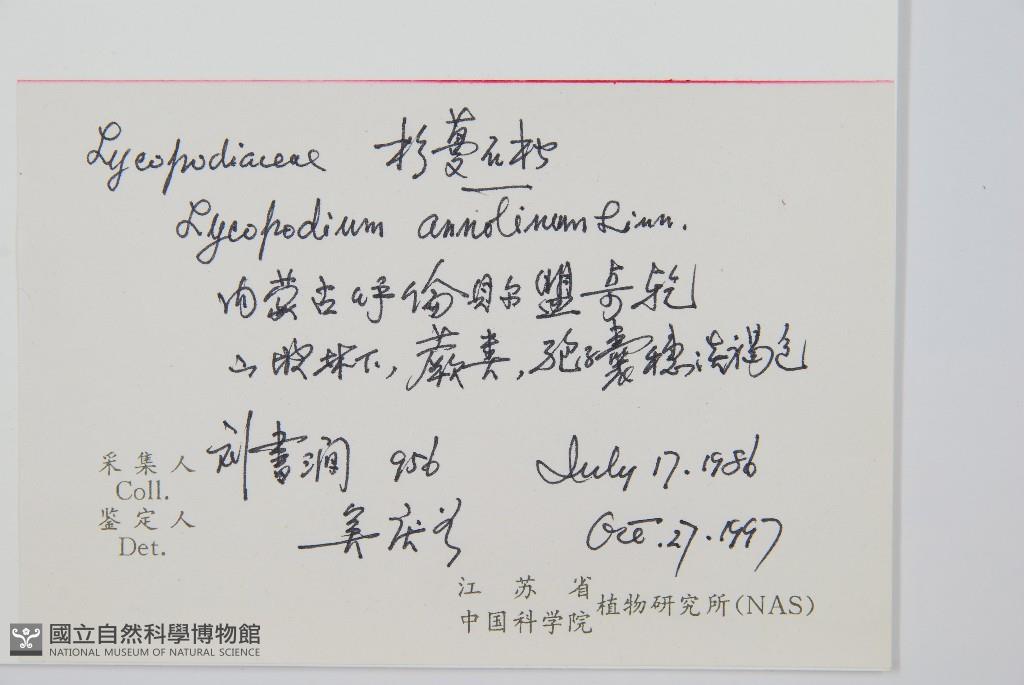 Lycopodiaceae 杉蔓石松
Lycopodium annotinum Linn.
内蒙古呼伦贝尔盟奇乾
山坡林下，蕨类，孢子囊穗淡褐色
采集人 刘书润 956 July 17.1986
Coll.
鉴定人 吴庆 Oct.27.1997
Det.
江苏省
中国科学院 植物研究所(NAS)
國立自然科學博物館
NATIONAL MUSEUM OF NATURAL SCIENCE